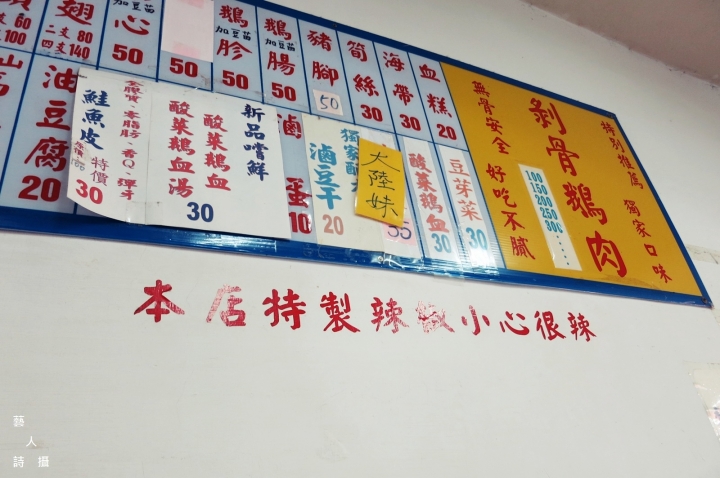 特別推薦 獨家口味
剝骨鵝肉
100
150
200
250
300
無骨安全 好吃不膩
血糕 20
海帶 30
筍絲 30
豬腳 50
鵝腸 加豆苗 50
鵝胗 加豆苗 50
50
心 加豆苗 50
翅 二支80 四支140
60
100
豆芽菜 30
酸菜鵝血 30
大陸妹
35
獨家
滷豆干 20
滷蛋 10
新品嚐鮮
酸菜鵝血
酸菜鵝血湯
30
全膠質、零脂肪、香Q、彈牙
鮭魚皮 特價 30
油豆腐 20
本店特製辣椒小心很辣
藝人
詩攝